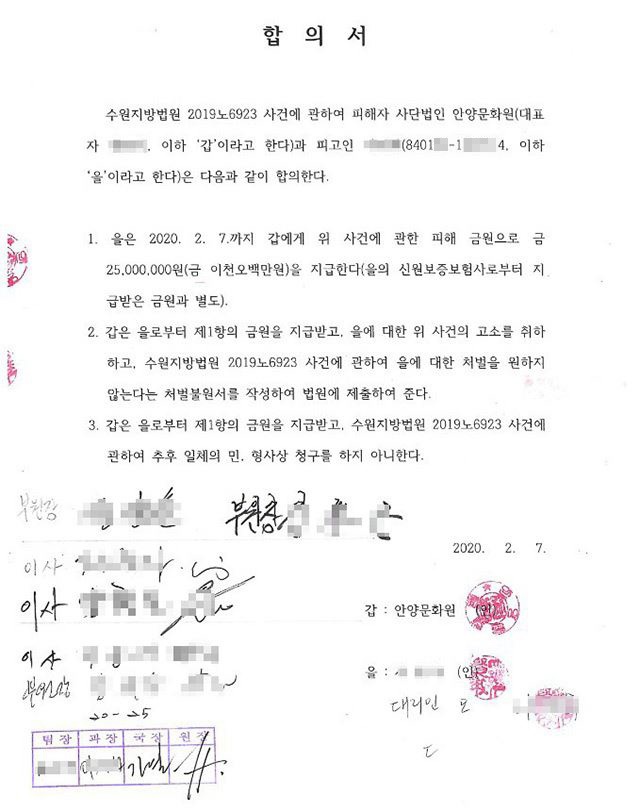 합 의 서
수원지방법원 2019노6923 사건에 관하여 피해자 사단법인 안양문화원(대표
자 , 이하 ‘갑’이라고 한다)과 피고인 (8401 -1 4, 이하
‘을’이라고 한다)은 다음과 같이 합의한다.
1. 을은 2020. 2. 7.까지 갑에게 위 사건에 관한 피해 금원으로 금
25,000,000원(금 이천오백만원)을 지급한다(을의 신원보증보험사로부터 지
급받은 금원과 별도).
2. 갑은 을로부터 제1항의 금원을 지급받고, 을에 대한 위 사건의 고소를 취하
하고, 수원지방법원 2019노6923 사건에 관하여 을에 대한 처벌을 원하지
않는다는 처벌불원서를 작성하여 법원에 제출하여 준다.
3. 갑은 을로부터 제1항의 금원을 지급받고, 수원지방법원 2019노6923 사건에
관하여 추후 일체의 민, 형사상 청구를 하지 아니한다.
부원장 부원장
2020. 2. 7.
이사
이사
갑 : 안양문화원 (인)
이사
을 : (인)
대리인 모
20-25
팀 장 과 장 국 장 원 장